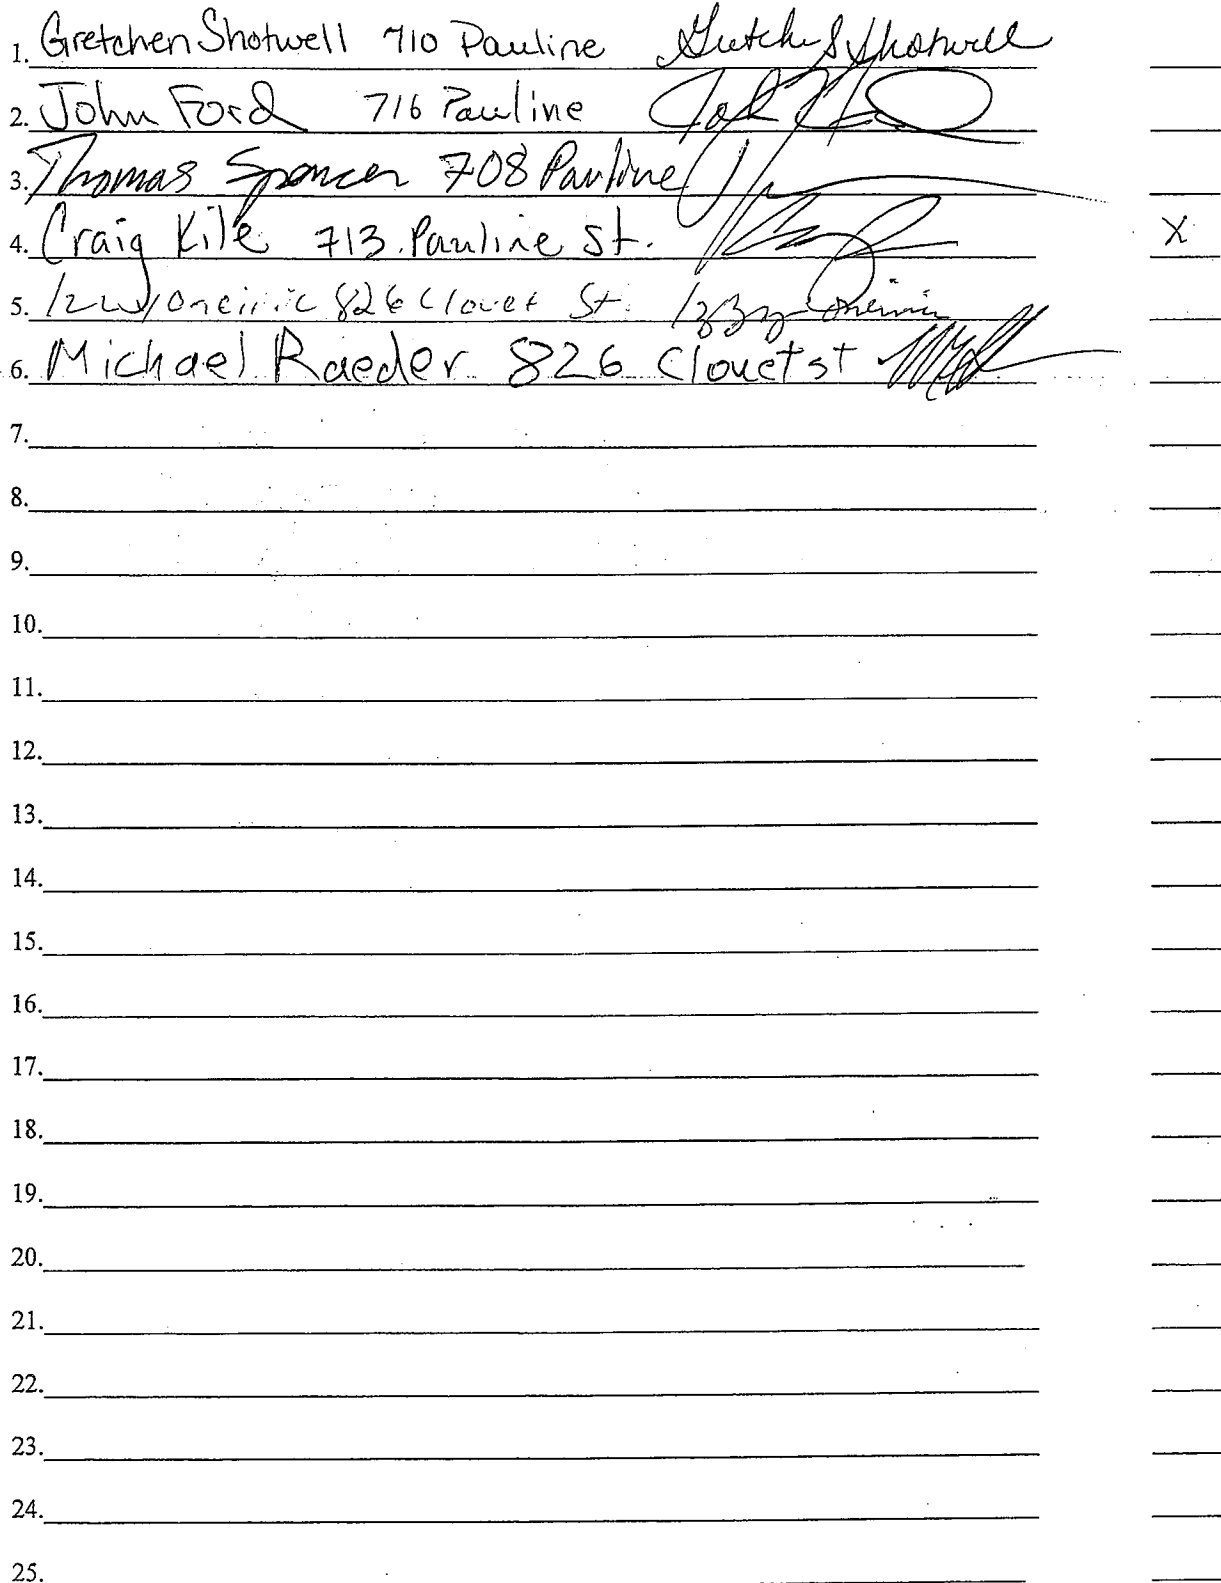 1. Gretchen Shotwell 710 Pauline Gretchen S Shotwell
2. John Ford 716 Pauline
3. Thomas Spencer 708 Pauline
4. Craig Kile 713 Pauline St. X
5. Oneiric 826 Clouet St. Izzy Oneiric
6. Michael Raeder 826 Clouet st
7.
8.
9.
10.
11.
12.
13.
14.
15.
16.
17.
18.
19.
20.
21.
22.
23.
24.
25.